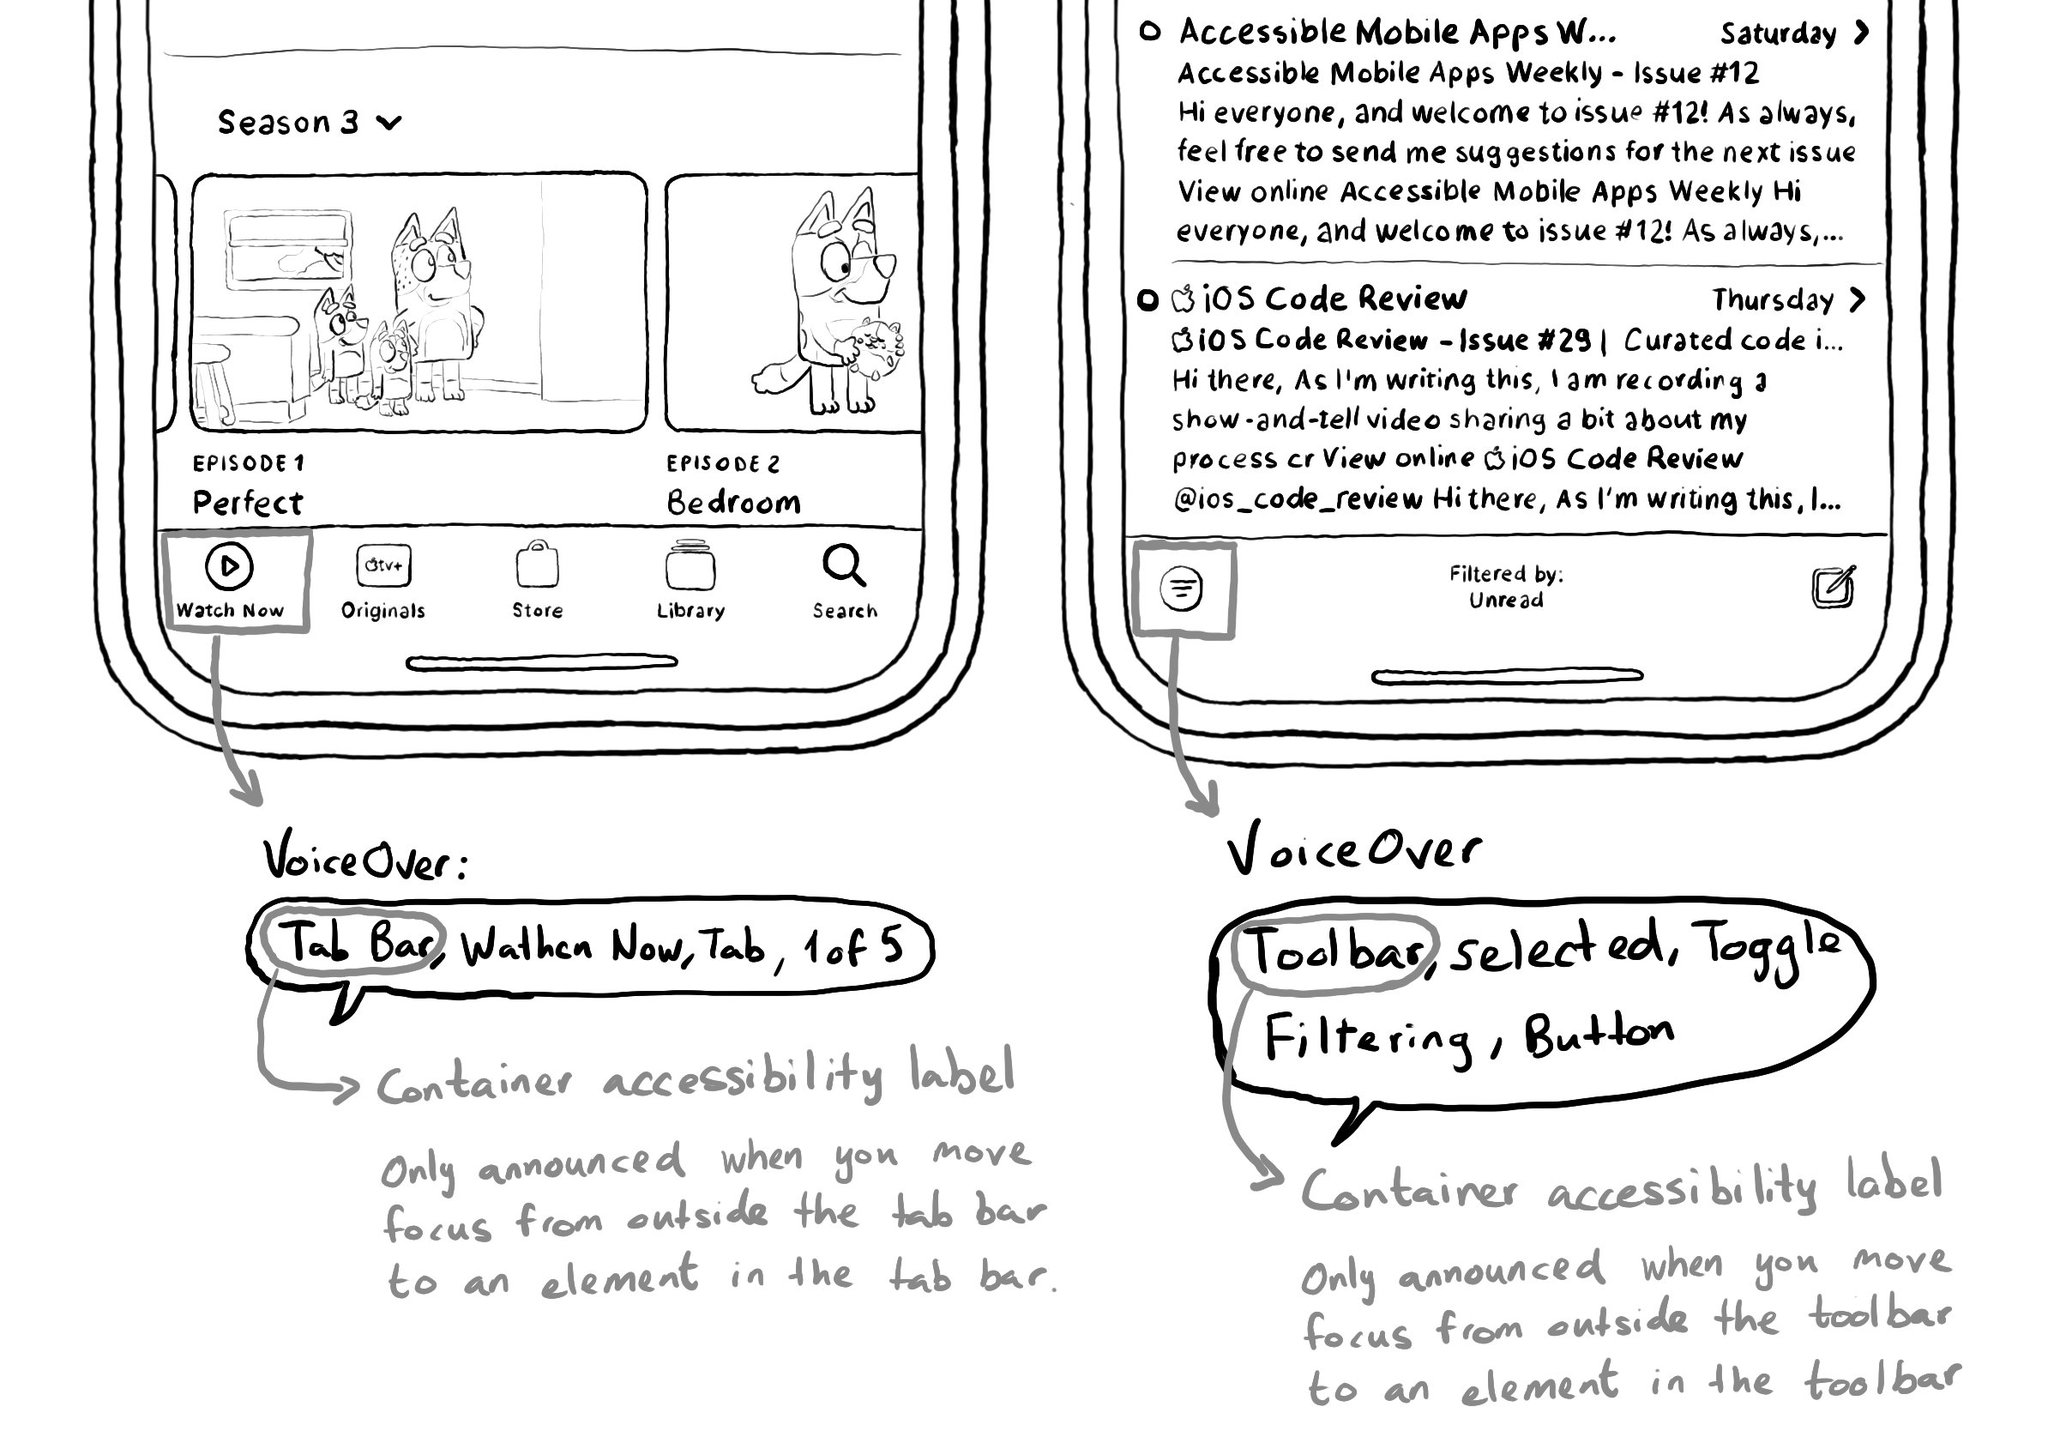 Season 3
EPISODE 1
Perfect
EPISODE 2
Bedroom
Watch Now
tv+
Originals
Store
Library
Search
VoiceOver:
Tab Bar, Wathcn Now, Tab, 1 of 5
Container accessibility label
Only announced when you move
focus from outside the tab bar
to an element in the tab bar.
Accessible Mobile Apps W... Saturday
Accessible Mobile Apps Weekly - Issue #12
Hi everyone, and welcome to issue #12! As always,
feel free to send me suggestions for the next issue
View online Accessible Mobile Apps Weekly Hi
everyone, and welcome to issue #12! As always,...
iOS Code Review Thursday
iOS Code Review - Issue #29 | Curated code i...
Hi there, As I'm writing this, I am recording a
show-and-tell video sharing a bit about my
process cr View online iOS Code Review
@ios_code_review Hi there, As I'm writing this, I...
Filtered by:
Unread
VoiceOver
Toolbar, selected, Toggle
Filtering, Button
Container accessibility label
Only announced when you move
focus from outside the toolbar
to an element in the toolbar